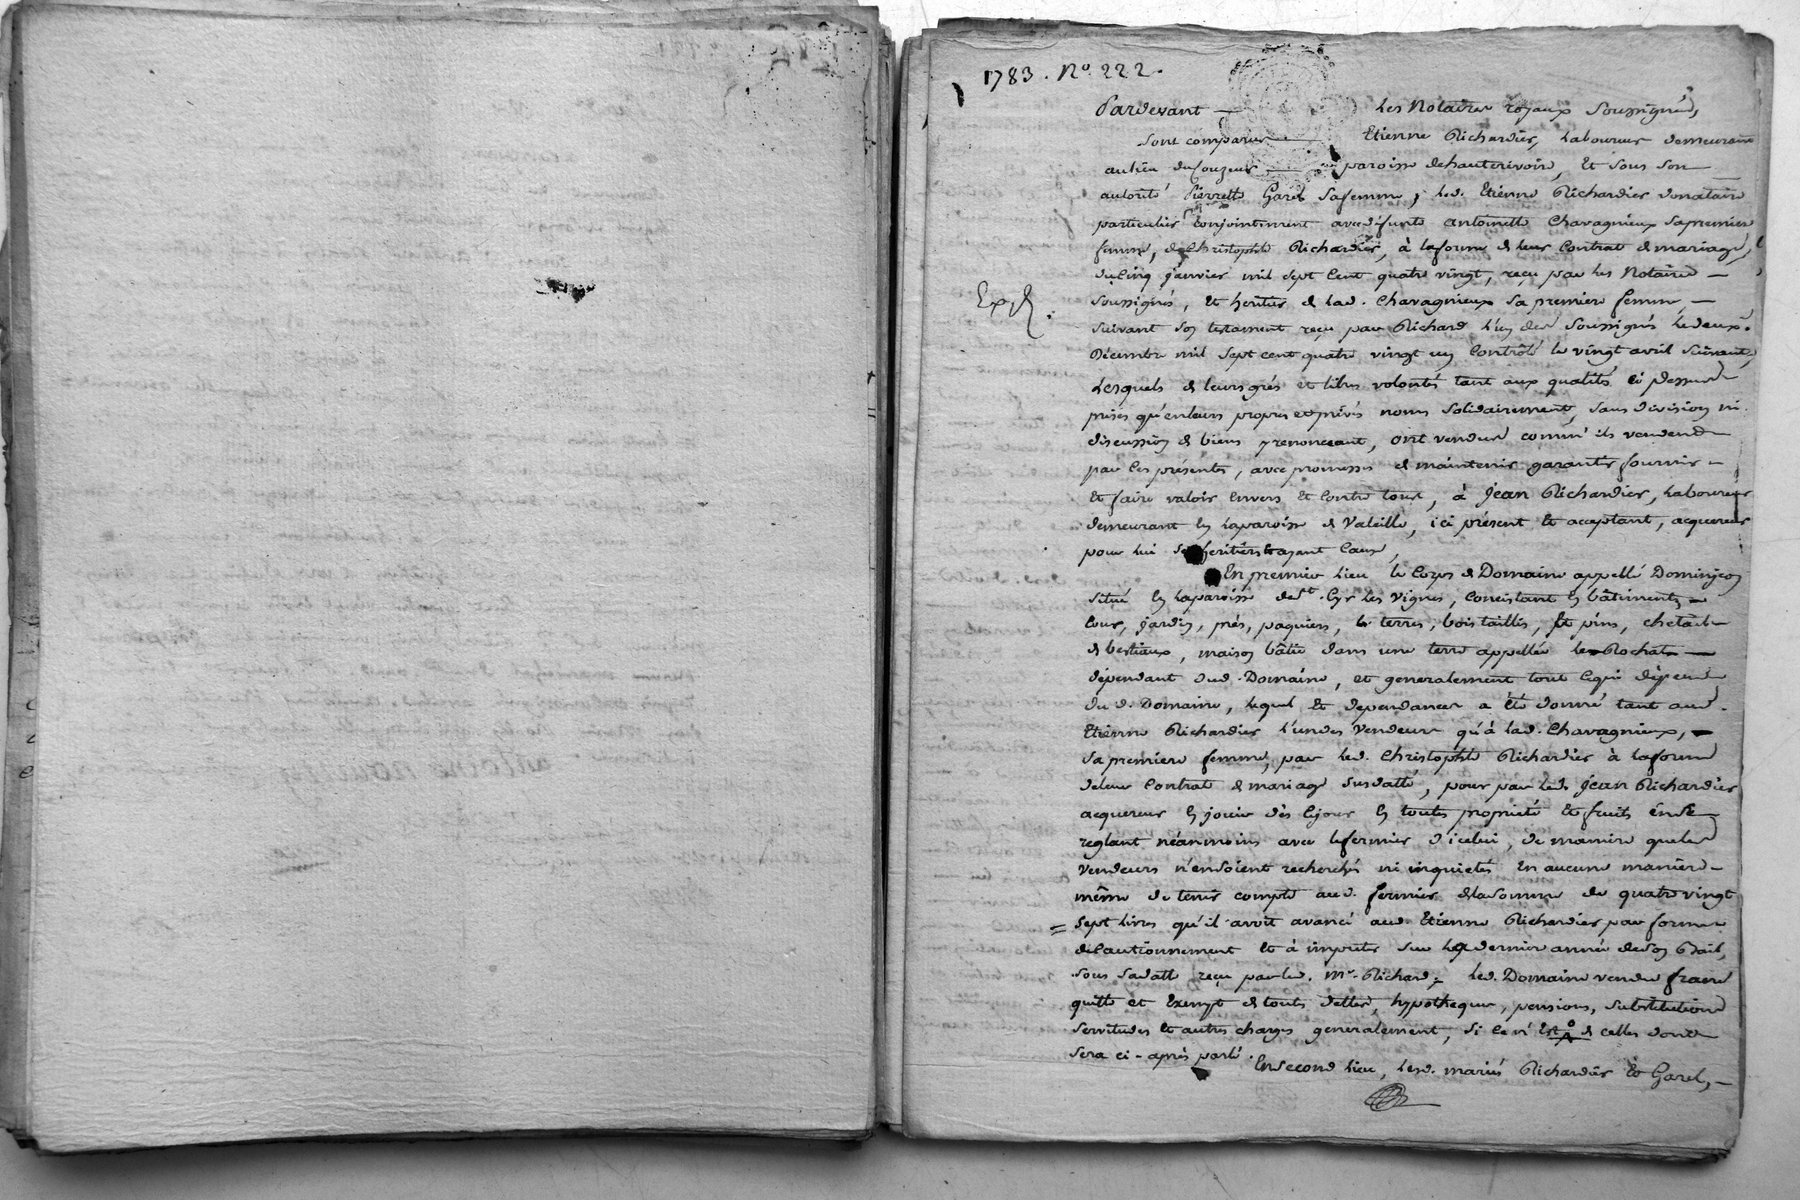 1783. No. 222.
Pardevant — Les Notaires royaux Soussignés,
Sont comparus Etienne Richardier, Laboureur demeurant
au lieu du Couzeur paroisse dehauterivoire, Et sous son
autorité Pierrette Garel Safemme, led. Etienne Richardier donataire
particulier conjointement avec défunte antoinette Chavagnieux Sapremiere
femme, de Christophle Richardier, à laforme de leur Contrat de mariage,
du Cinq janvier mil sept Cent quatre vingt, reçu par les Notaire —
Soussignés, Et heritier de lad. Chavagnieux Sa premiere femme, —
Suivant Son testament reçu par Richard L'un des Soussignés Ledeuxe.
Décembre mil Sept cent quatre vingt un Contrôlé le vingt avril Suivant,
Lesquels de leurs grés et libre volontés tant aux qualités ci dessus
prises qu'enleurs propres etprivés noms Solidairement, Sans division ni
discussion de biens y renonceant, ont vendus comm' ils vendent
par Ces présentes, avec promesses de maintenir garantir fournir —
Et faire valoir Envers Et Contre tous, à Jean Richardier, Laboureur
demeurant En Laparoisse de Valeille, ici présent Et acceptant, acquereur
pour lui Ses heritiers Etayant Cause,
En premier Lieu le Corps de Domaine appellé Dominjon
Situé En Laparoisse deSt. Cyr Les Vignes, Consistant En bâtiments —
Cour, jardin, prés, paquiers, terres, bois taillis, Et pins, chetail
de bestiaux, maison bâtie dans une terre appellée le Rochat —
dépendant dud. Domaine, et generalement tout Cequi dépend
du d. Domaine, Lequel Et dependances a Eté donné tant aud.
Etienne Richardier L'undes Vendeurs qu'à lad. Chavagnieux, —
Sapremiere femme, par led. Christophle Richardier à laforme
deleur Contrat de mariage Susdatté, pour par led. Jean Richardier
acquereur En jouir dès Cejour En toutes propriété Et fruits Ense
reglant néanmoins avec lefermier d'icelui, de maniere queles
Vendeurs n'ensoient recherchés ni inquietés En aucune maniere —
même de tenir compte aud. fermier delasomme de quatre vingt
Sept livres qu'il avoit avancé aud. Etienne Richardier par forme
deCautionnement Et à imputer Sur la derniere année deson Bail,
Sous Sadatte reçu parled. Mr. Richard, Led. Domaine vendu franc
quitte et Exempt de toutes dettes, hypotheques, pensions, Substitutions
Servitudes Et autres charges generalement, Si Ce n'Est de celles dont
Sera ci-après parlé.
Ensecond Lieu, Lesd. mariés Richardier Et Garel, —